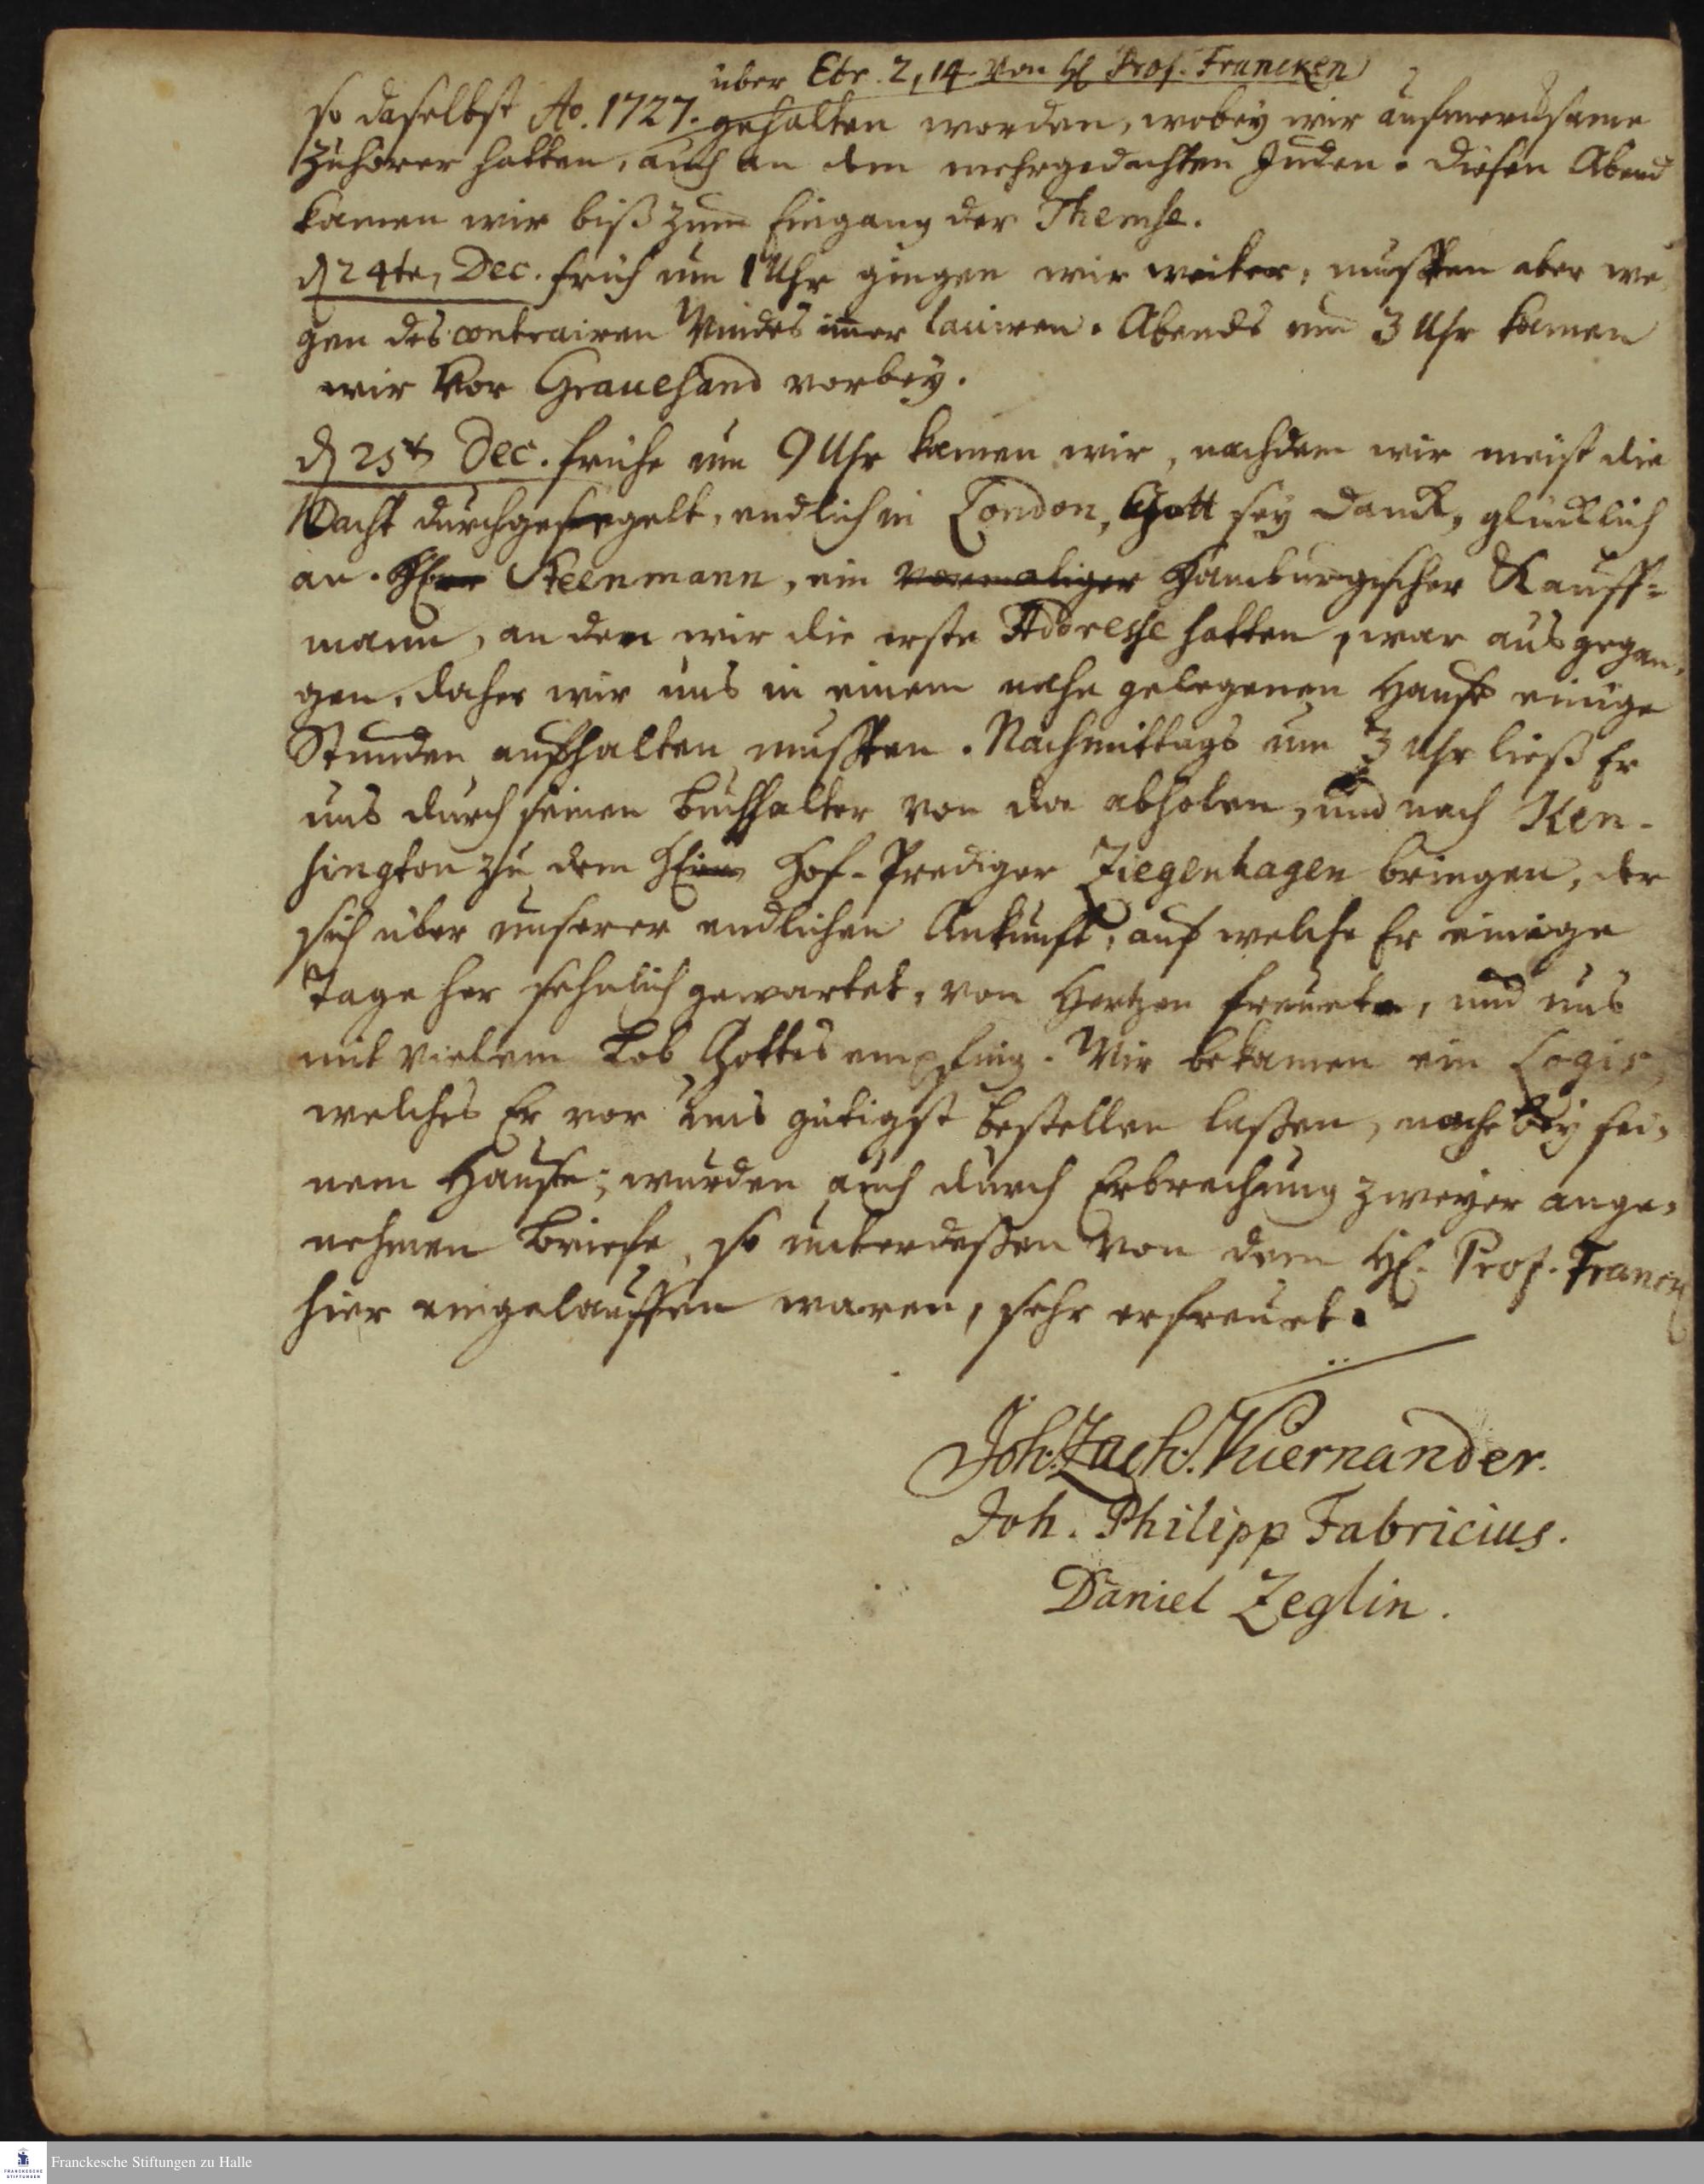 über Ebr. 2, 14. von H Prof. Francken
so daselbst Ao. 1727. gehalten worden, wobey wir aufmercksame
Zuhörer hatten, auch an dem mehrgedachten Juden. Diesen Abend
kamen wir biß zum Eingang der Themse.
d 24te, Dec. früh um 1 Uhr gingen wir weiter; musten aber we-
gen des contrairen Windes im̃er laviren. Abends um 3 Uhr kamen
wir vor Gravesand vorbey.
d 25t Dec. frühe um 9 Uhr kamen wir, nachdem wir meist die
Nacht durchgesegelt, endlich in London, Gott sey Danck, glücklich
an. Herr Steenmann, ein vormaliger Hamburgischer Kauff-
mann, an den wir die erste Addresse hatten, war ausgegan-
gen, daher wir uns in einem nahe gelegenen Hause einige
Stunden aufhalten musten. Nachmittags um 3 Uhr ließ Er
uns durch seinen Buchhalter von da abholen, und nach Ken-
sington zu dem Herrn Hof-Prediger Ziegenhagen bringen, der
sich über unserer endlichen Ankunft, auf welche Er einige
Tage her sehnlich gewartet, von Hertzen freuete, und uns
mit vielem Lob Gottes empfing. Wir bekamen ein Logis,
welches Er vor uns gütigst bestellen laßen, nahe bey sei-
nem Hause; wurden auch durch Erbrechung zweyer ange-
nehmen Briefe, so unterdeßen von dem H. Prof. Franck
hier eingelauffen waren, sehr erfreuet.
Joh. Zach. Kiernander.
Joh. Philipp Fabricius.
Daniel Zeglin.
FRANCKESCHE
STIFTUNGEN
Franckesche Stiftungen zu Halle